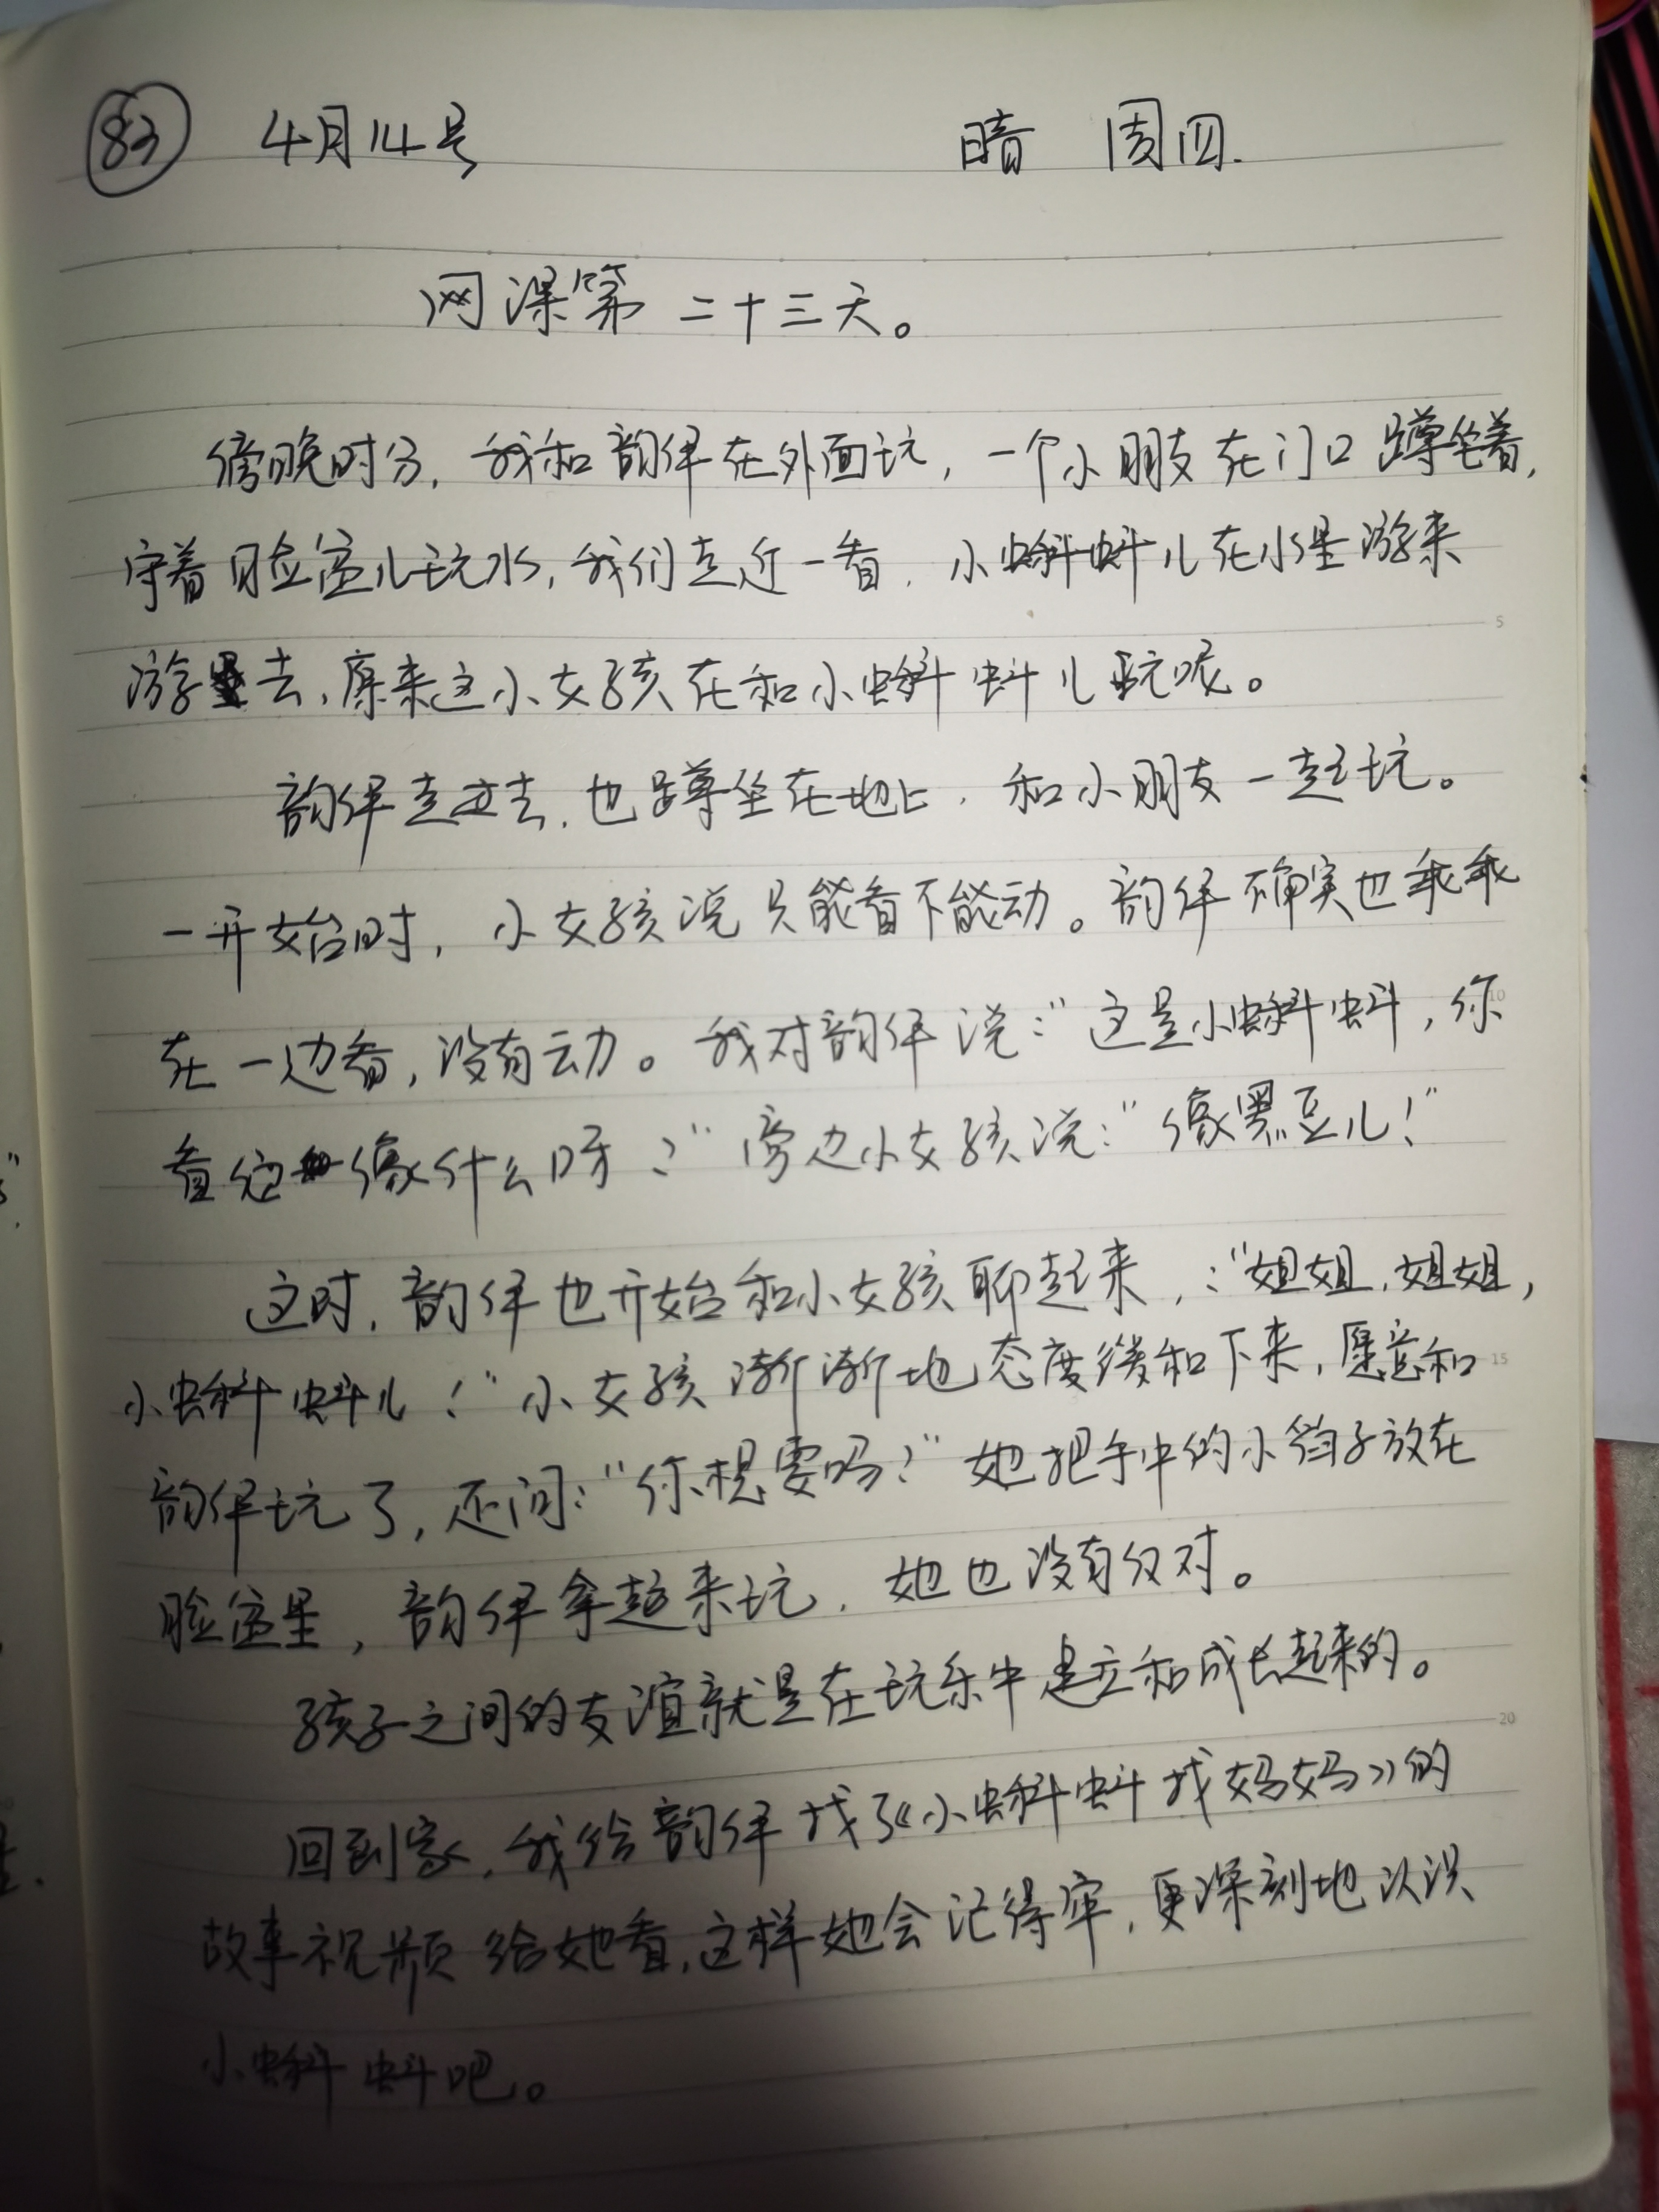 83 4月14号 暗 周四.
网课第二十三天。
傍晚时分,我和韵伴在外面玩,一个小朋友在门口蹲坐着,
守着脸盆儿玩水,我们走近一看,小蝌蚪儿在水里游来
游去,原来这小女孩在和小蝌蚪儿玩呢。
韵伴走过去,也蹲坐在地上,和小朋友一起玩。
一开始时,小女孩说只能看不能动。韵伴确实也乖乖
在一边看,没有动。我对韵伴说:“这是小蝌蚪,你
看它像什么呀?”旁边小女孩说:“像黑豆儿!”
这时,韵伴也开始和小女孩聊起来,:“姐姐,姐姐,
小蝌蚪儿!”小女孩渐渐地态度缓和下来,愿意和
韵伴玩了,还问:“你想要吗?”她把手中的小钩子放在
脸盆里,韵伴拿起来玩,她也没有反对。
孩子之间的友谊就是在玩乐中建立和成长起来的。
回到家,我给韵伴找了《小蝌蚪找妈妈》的
故事视频给她看,这样她会记得牢,更深刻地认识
小蝌蚪吧。